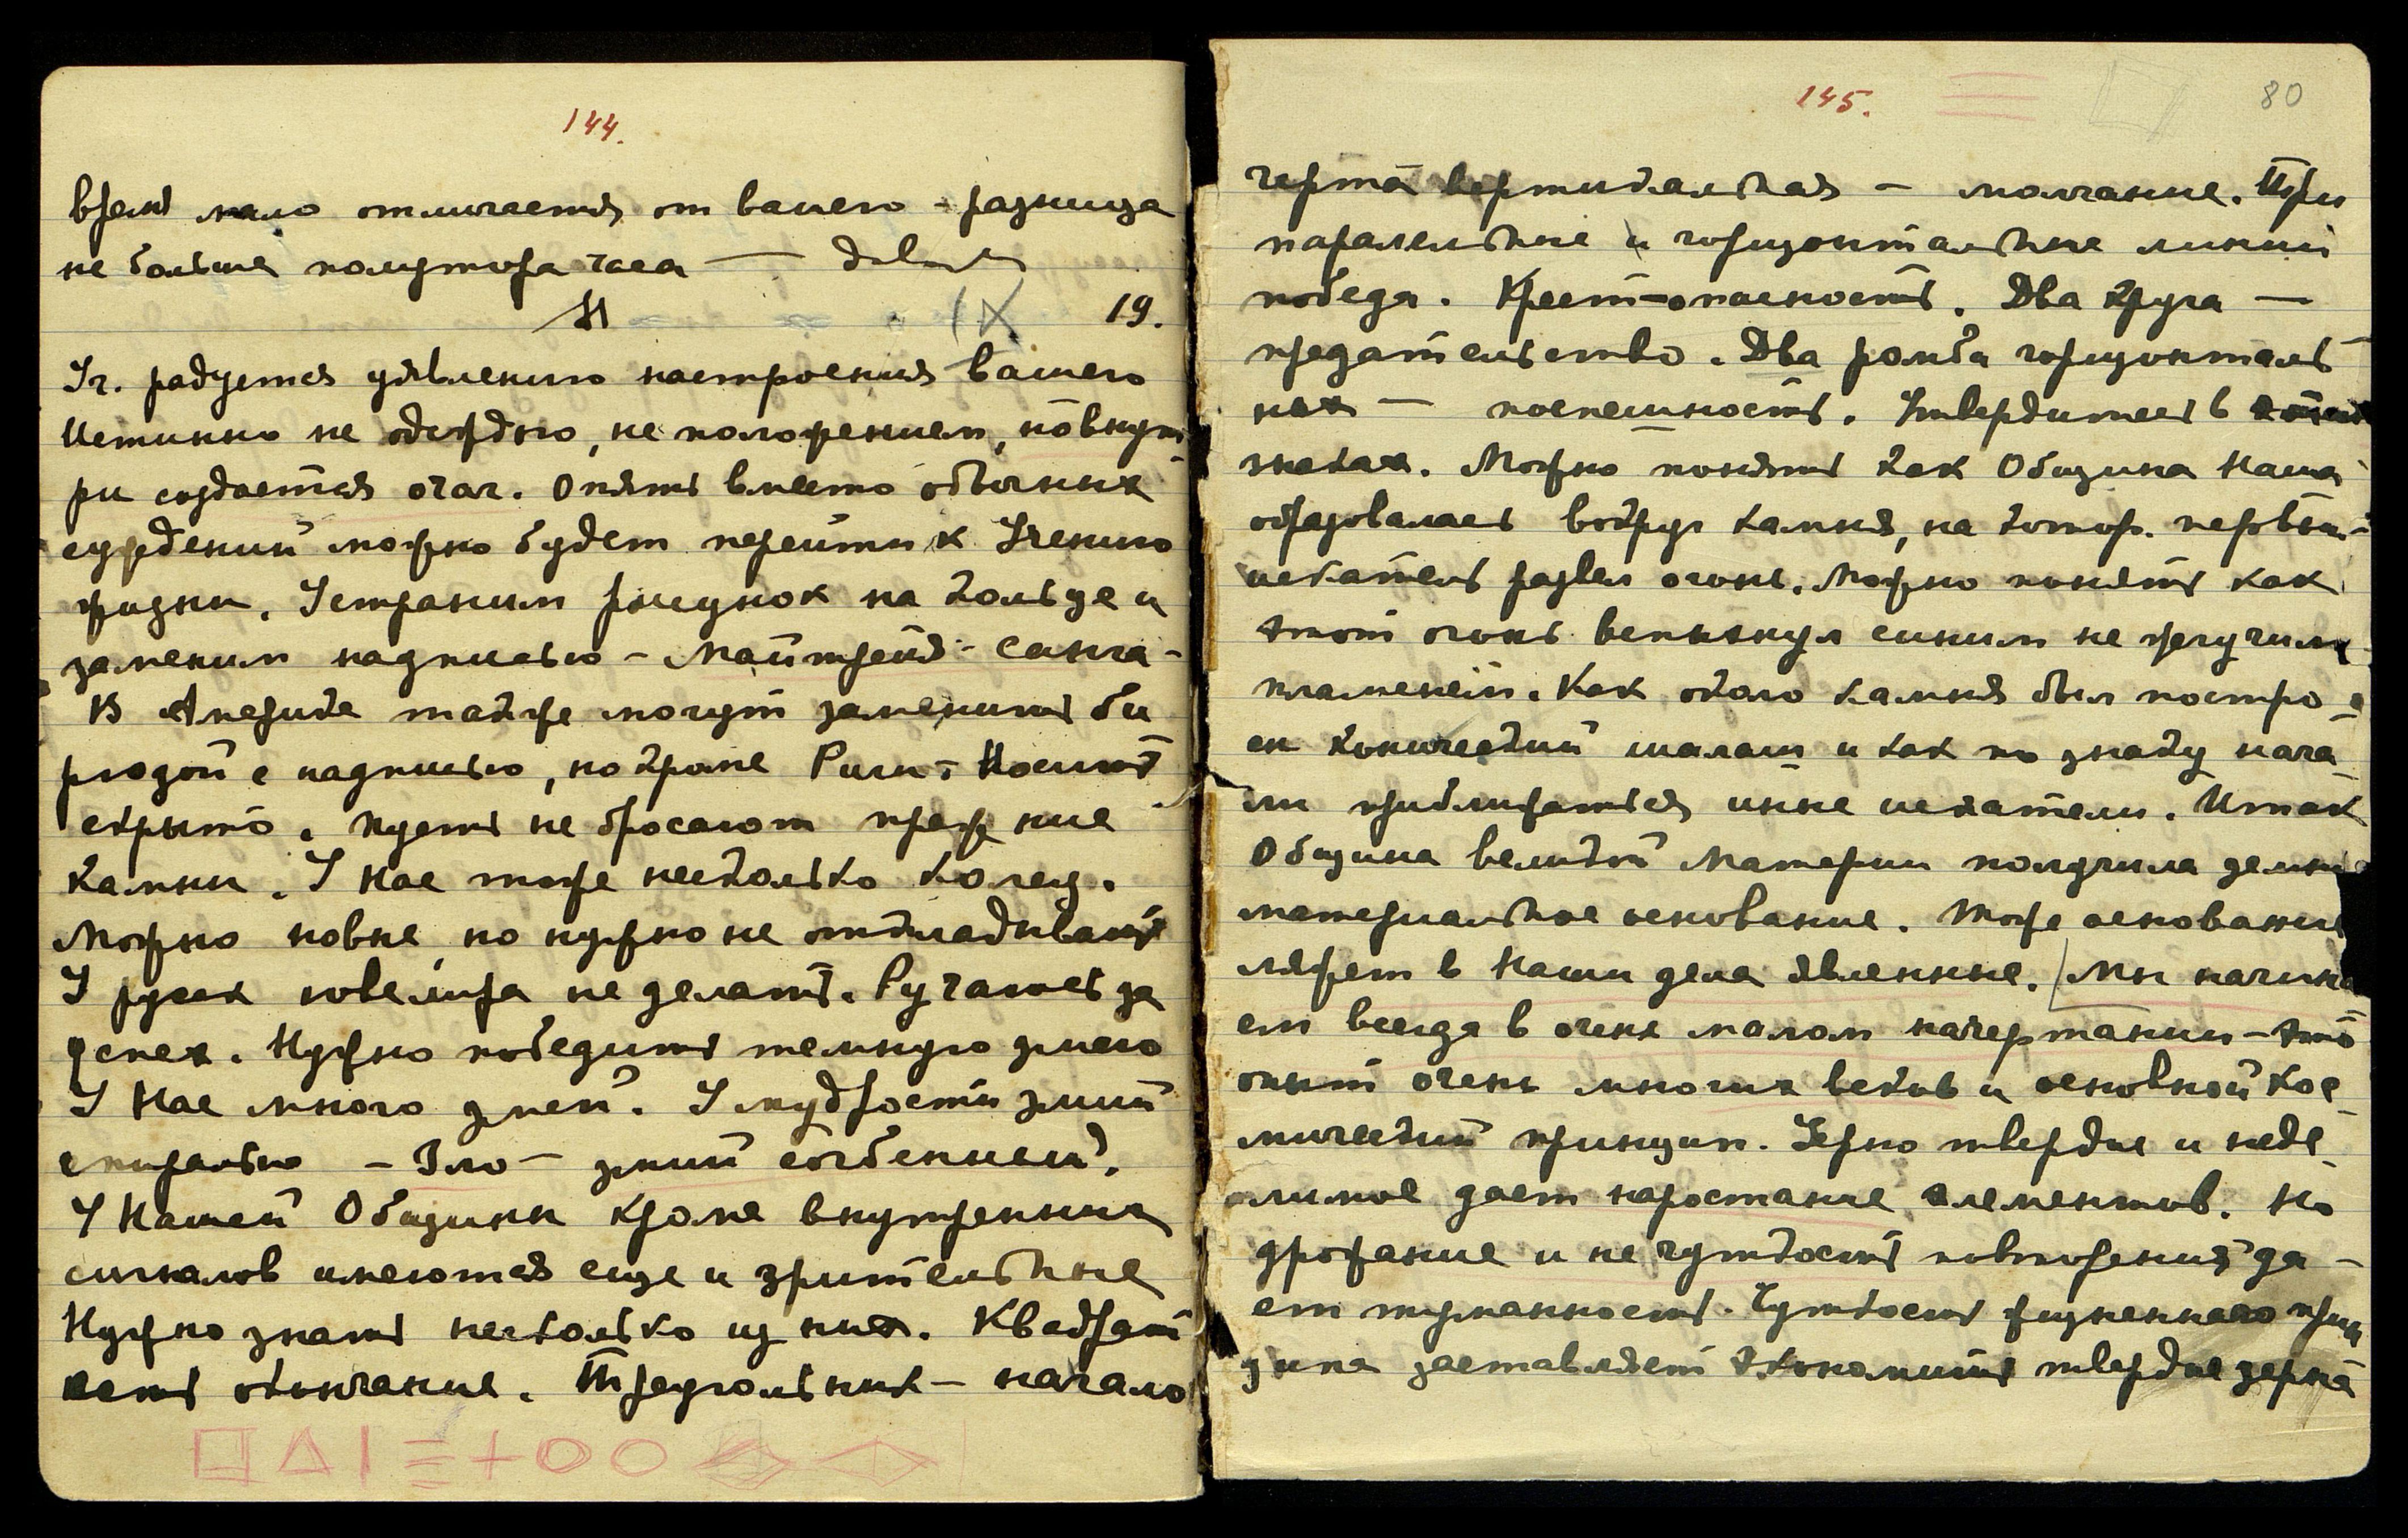 144.
время мало отличается от вашего - разница
не больше полутора часа — довольно
И
IX 19.
Уч. радуется уявлению настроения вашего
Истинно не одеждою, не положением, но внут
ри создается очаг. Опять вместо обычных
суждений можно будет перейти к Учению
жизни. Устраним рисунок на кольце и
заменим надписью - Майтрейя - Сангха -
В Америке также могут заменить би
рюзой с надписью, но кроме Риги - Носить
скрыто. Пусть не бросают прежние
камни. У Нас тоже несколько колец.
Можно новые, но нужно не откладывать
У руск ювелира не делать. Ручаюсь за
успех. Нужно победить темную змею
У Нас много змей. У мудрости змий
спиралью - Зло - змий согбенный.
У Нашей Общины кроме внутренних
сигналов имеются еще и зрительные
Нужно знать несколько из них. Квадрат
есть окончание. Треугольник - начало
145.
80
черта вертикальная - молчание. Три
паралельные и горизонтальные линии
победа. Крест - опасность. Два круга —
предательство. Два ромба горизонталь
ных — поспешность. Утвердитесь в
знаках. Можно понять как Община Наша
образовалась вокруг камня, на котор. первый
искатель развел огонь. Можно понять как
этот огонь вспыхнул синим не жгучим
пламенем. Как около камня был постро
ен конический шалаш и как по знаку нача
ли приближаться иные искатели. Итак
Община великой Материи получила земное
материальное основание. Тоже основание
ляжет в Наши дела явленные. Мы начина
ем всегда в очень малом начертании - это
опыт очень многих веков и основной кос
мический принцип. Зерно твердое и неде
лимое дает наростание элементов. Но
дрожание и не чуткость повторения да -
ет туманность. Чуткость жизненного прин
ципа заставляет экономить твердые зерна